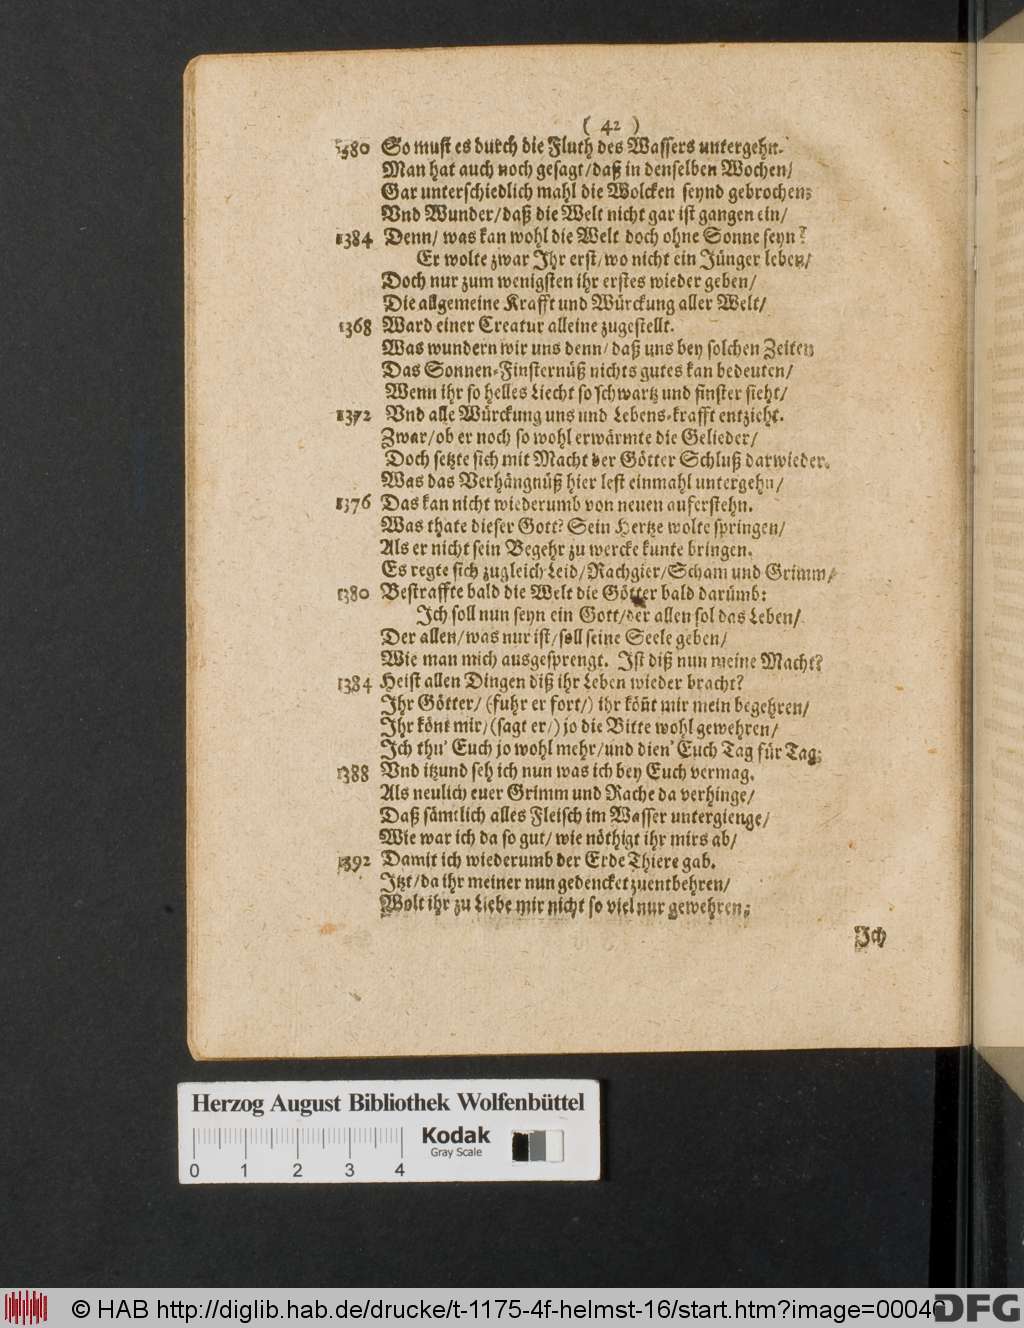 ( 42 )
1380 So must es durch die Fluth des Wassers untergehn.
Man hat auch noch gesagt/ daß in denselben Wochen/
Gar unterschiedlich mahl die Wolcken seynd gebrochen;
Vnd Wunder/ daß die Welt nicht gar ist gangen ein/
1384 Denn/ was kan wohl die Welt doch ohne Sonne seyn?
Er wolte zwar Ihr erst/ wo nicht ein Jünger leben/
Doch nur zum wenigsten ihr erstes wieder geben/
Die allgemeine Krafft und Würckung aller Welt/
1368 Ward einer Creatur alleine zugestellt.
Was wundern wir uns denn/ daß uns bey solchen Zeiten
Das Sonnen-Finsternüß nichts gutes kan bedeuten/
Wenn ihr so helles Liecht so schwartz und finster sieht/
1372 Vnd alle Würckung uns und Lebens-krafft entzicht.
Zwar/ ob er noch so wohl erwärmte die Gelieder/
Doch setzte sich mit Macht der Götter Schluß darwieder.
Was das Verhängnüß hier lest einmahl untergehn/
1376 Das kan nicht wiederumb von neuen auferstehn.
Was thate dieser Gott? Sein Hertze wolte springen/
Als er nicht sein Begehr zu wercke kunte bringen.
Es regte sich zugleich Leid/ Rachgier/ Scham und Grimm/
1380 Bestraffte bald die Welt die Götter bald darümb:
Ich soll nun seyn ein Gott/ der allen sol das Leben/
Der allen/ was nur ist/ soll seine Seele geben/
Wie man mich ausgesprengt. Ist diß nun meine Macht?
1384 Heist allen Dingen diß ihr Leben wieder bracht?
Ihr Götter/ (fuhr er fort/) ihr köñt mir mein begehren/
Ihr könt mir/ (sagt er/) jo die Bitte wohl gewehren/
Ich thu' Euch jo wohl mehr/ und dien' Euch Tag für Tag;
1388 Vnd itzund seh ich nun was ich bey Euch vermag.
Als neulich euer Grimm und Rache da verhinge/
Daß sämtlich alles Fleisch im Wasser untergienge/
Wie war ich da so gut/ wie nöthigt ihr mirs ab/
1392 Damit ich wiederumb der Erde Thiere gab.
Itzt/ da ihr meiner nun gedencket zuentbehren/
Wolt ihr zu Liebe mir nicht so viel nur gewehren;
Ich
Herzog August Bibliothek Wolfenbüttel
Kodak
Gray Scale
0 1 2 3 4
© HAB http://diglib.hab.de/drucke/t-1175-4f-helmst-16/start.htm?image=00040
DFG